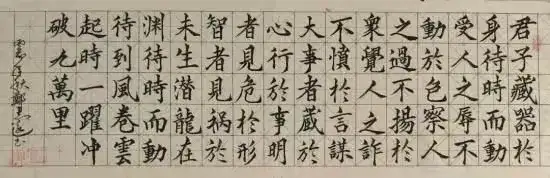 君子藏器於
身待時而動
受人之辱不
動於色察人
之過不揚於
衆覺人之詐
不憤於言謀
大事者藏於
心行於事明
者見危於形
智者見禍於
未生潜龍在
渊待時而動
待到風卷雲
起時一躍冲
破九萬里